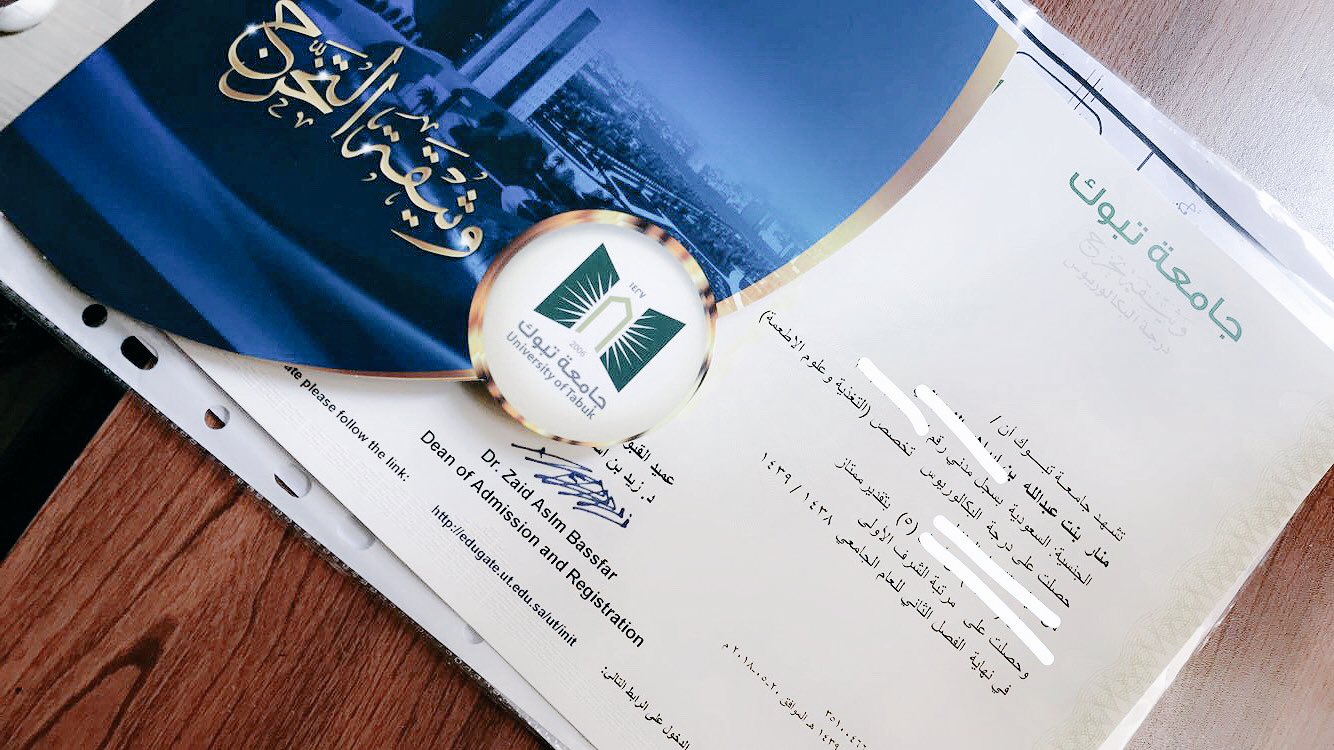 وثيقة التخرج
١٤٢٧
2006
جامعة تبوك
University of Tabuk
جامعة تبوك
وثيقة تخرج
درجة البكالوريوس
تشهد جامعة تبوك أن /
منار بنت عبدالله
الجنسية: السعودية بسجل مدني رقم
حصلت على درجة البكالوريوس تخصص (التغذية وعلوم الاطعمة)
(٥) بتقدير ممتاز
وحصلت على مرتبة الشرف الأولى
في نهاية الفصل الثاني للعام الجامعي ١٤٣٨ / ١٤٣٩
١٤٣٩ هـ الموافق ٢٠-٠٥-٢٠١٨ م
عميد القبو
د. زيد بن
Dr. Zaid Aslm Bassfar
Dean of Admission and Registration
please follow the link:
http://edugate.ut.edu.sa/ut/init
الدخول على الرابط التالي: